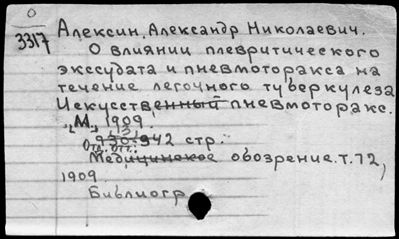 0
3317
Алексин, Александр Николаевич.
О влиянии плевритического
экссудата и пневмоторакса на
течение легочного туберкулеза
Искусственный пневмоторакс.
"М", 1909.
13
930-942 стр.
Отд. отт.
Медицинское обозрение. т. 72,
1909.
Библиогр